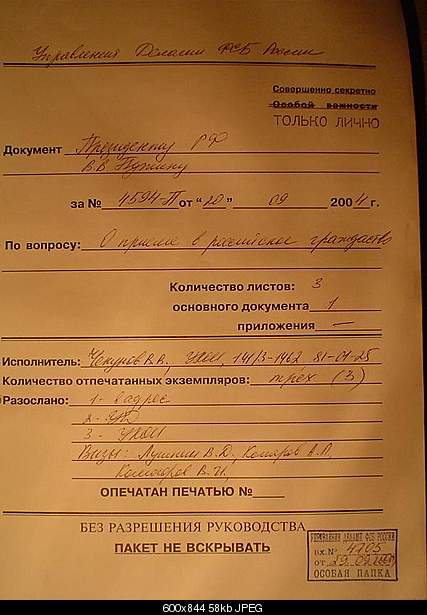 Управления Делами ФСБ России
Совершенно секретно
Особой важности
ТОЛЬКО ЛИЧНО
Документ Президенту РФ
В.В. Путину
за № 4594-П от "20" 09 2004 г.
По вопросу: О приеме в российское гражданство
Количество листов: 3
основного документа 1
приложения —
Исполнитель: В.В., 141/3-1462 81-01-25
Количество отпечатанных экземпляров: трех (3)
Разослано: 1 - в адрес
2 -
3 -
Визы: В.Д., Комаров А.П.,
Комогоров В.И.
ОПЕЧАТАН ПЕЧАТЬЮ №
БЕЗ РАЗРЕШЕНИЯ РУКОВОДСТВА
ПАКЕТ НЕ ВСКРЫВАТЬ
УПРАВЛЕНИЕ ДЕЛАМИ ФСБ РОССИИ
вх. № 4105
от 19.09
ОСОБАЯ ПАПКА
600x844 58kb JPEG